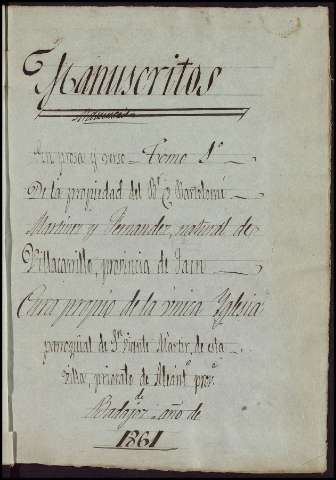 Manuscritos
Manuscritos
En prosa y verso - Tomo 1º
De la propiedad del Br. D. Bartolomé
Martinez y Fernandez, natural de
Villacarrillo, provincia de Jaen
Cura propio de la unica Yglesia
parroquial de Sn. Vicente Martir, de esta
Villa, priorato de Alcant.ª prov.ª
de
Badajoz año de
1861